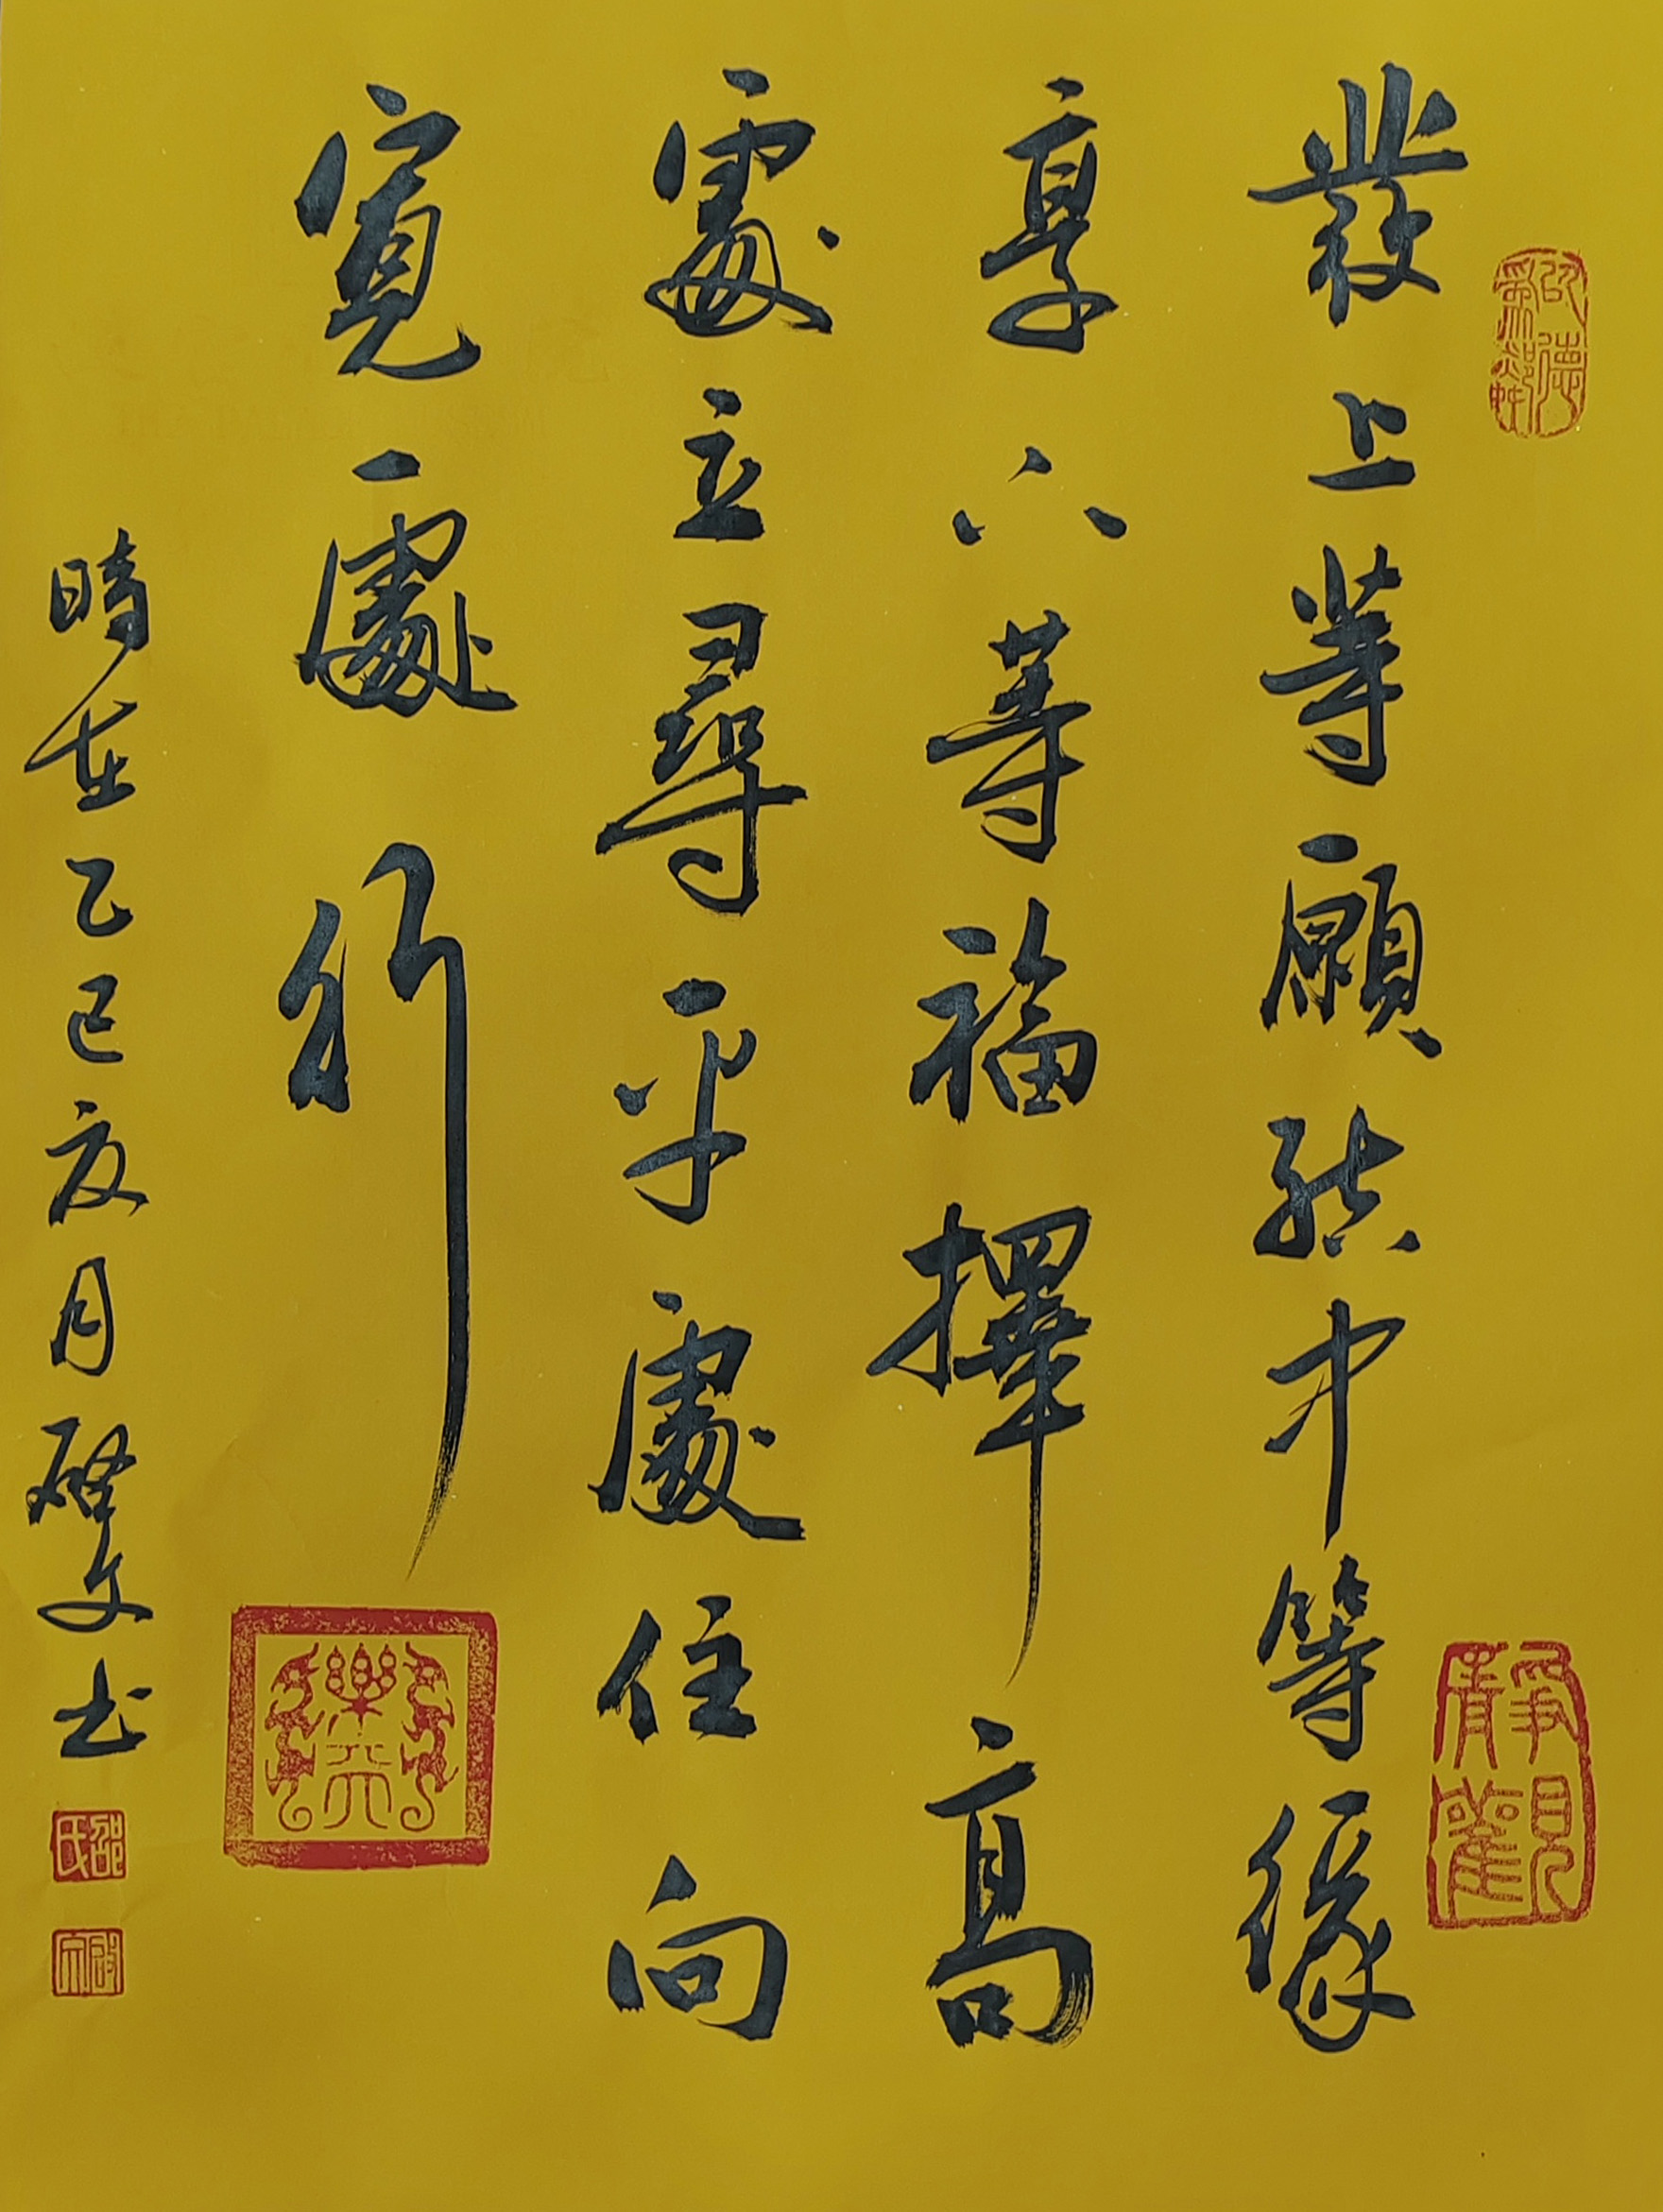 發上等願結中等緣
享下等福擇高
處立尋平處住向
寬處行
時在乙巳夏月啓文书
靜觀
邵氏